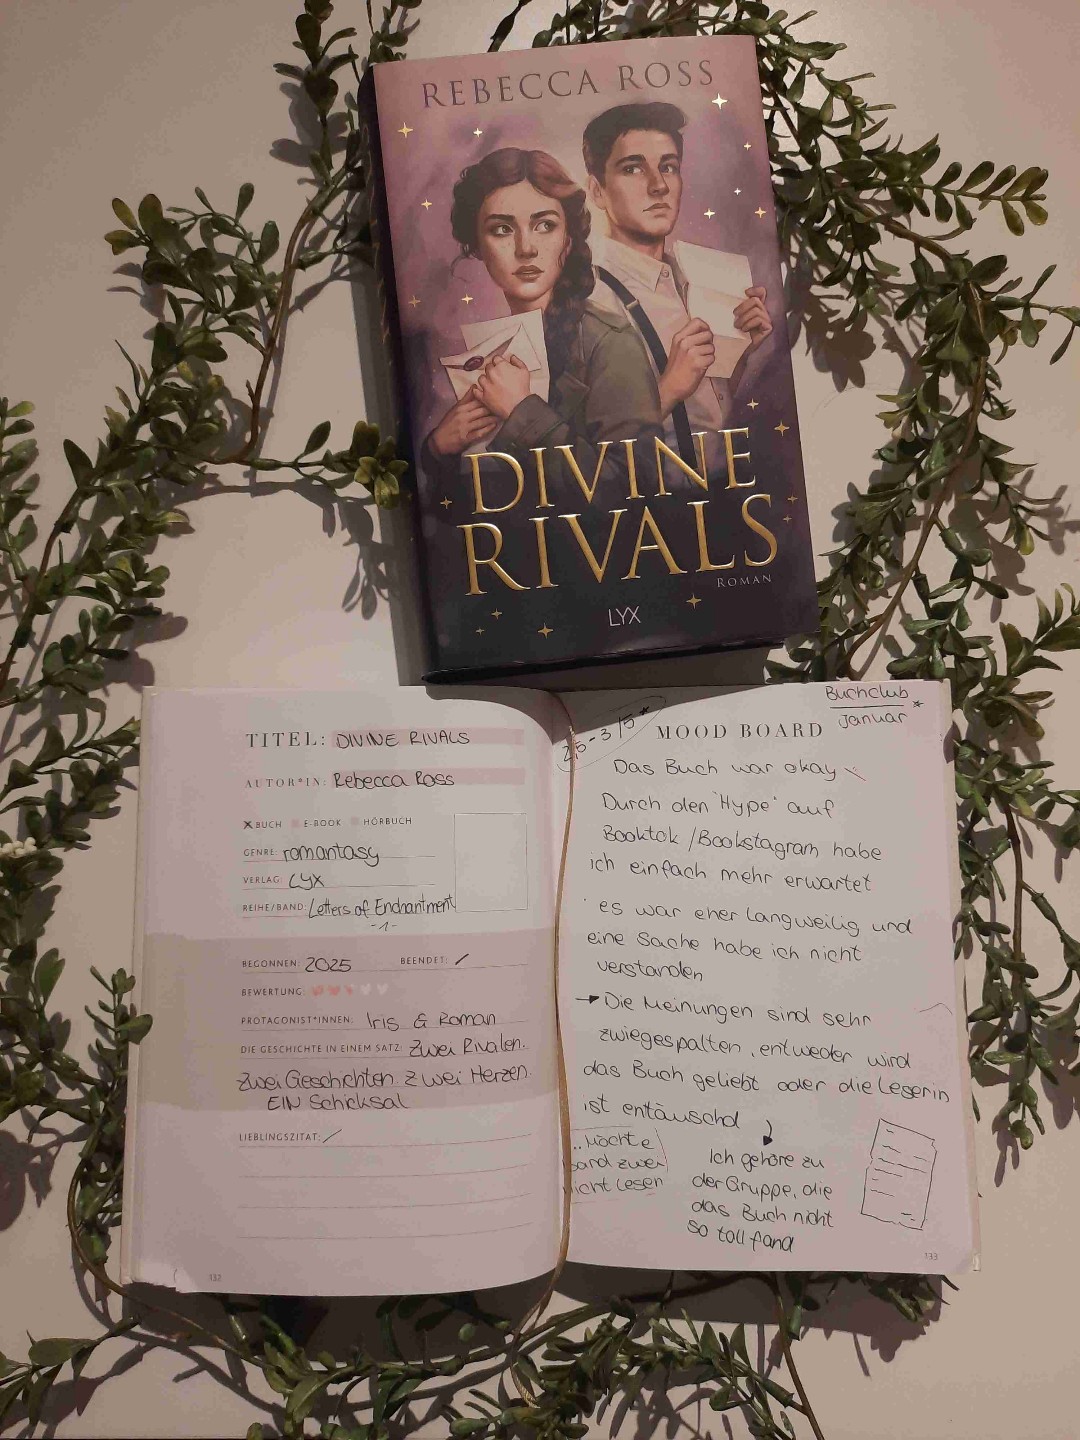 REBECCA ROSS
DIVINE
RIVALS
ROMAN
LYX
TITEL: DIVINE RIVALS
AUTOR*IN: Rebecca Ross
X BUCH E-BOOK HÖRBUCH
GENRE: romantasy
VERLAG: LYX
REIHE/BAND: Letters of Enchantment
-1-
BEGONNEN: 2025 BEENDET: /
BEWERTUNG:
PROTAGONIST*INNEN: Iris & Roman
DIE GESCHICHTE IN EINEM SATZ: Zwei Rivalen.
Zwei Geschichten. Zwei Herzen
EIN Schicksal
LIEBLINGSZITAT: /
132
Buchclub *
Januar
2,5 - 3/5 *
MOOD BOARD
Das Buch war okay
Durch den "Hype" auf
Booktok / Bookstagram habe
ich einfach mehr erwartet
es war eher langweilig und
eine Sache habe ich nicht
verstanden
→ Die Meinungen sind sehr
zwiegespalten, entweder wird
das Buch geliebt oder die Leserin
ist entäuschd
Ich gehöre zu
der Gruppe, die
das Buch nicht
so toll fand
..Möchte
band zwei
nicht lesen
133